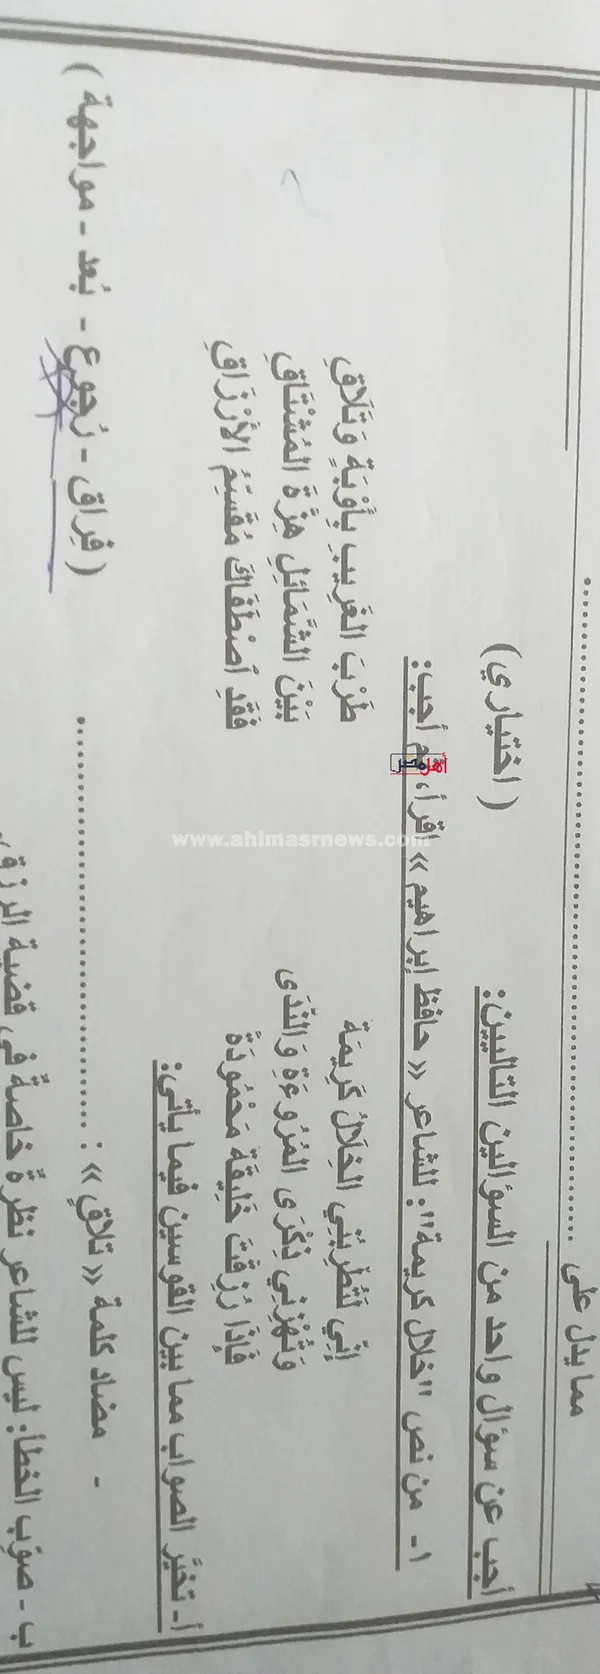 مما يدل على ........................................
أجب عن سؤال واحد من السؤالين التاليين: ( اختياري)
١- من نص "خلال كريمة". للشاعر « حافظ إبراهيم » اقرأ، ثم أجب:
أهل مصر
إِنِّي لَتُطْرِبُنِي الخِلَالُ كَرِيمَة طَرَبَ الغَرِيبِ بِأَوْبَةٍ وَتَلَاقِ
وَتَهُزُّنِي ذِكْرَى المُرُوءَةِ وَالنَّدَى بَيْنَ الشَّمَائِلِ هِزَّةَ المُشْتَاقِ
فَإِذَا رُزِقْتَ خَلِيقَةً مَحْمُودَةً فَقَدِ اصْطَفَاكَ مُقَسِّمُ الأَرْزَاقِ
www.ahlmasrnews.com
أ- تخيَّر الصواب مما بين القوسين فيما يأتي:
- مضاد كلمة « تلاقٍ » : ........................ (فِراق - رُجوع - بُعد - مواجهة )
ب - صوّب الخطأ: ليس للشاعر نظرةٌ خاصةٌ في قضية الرزق